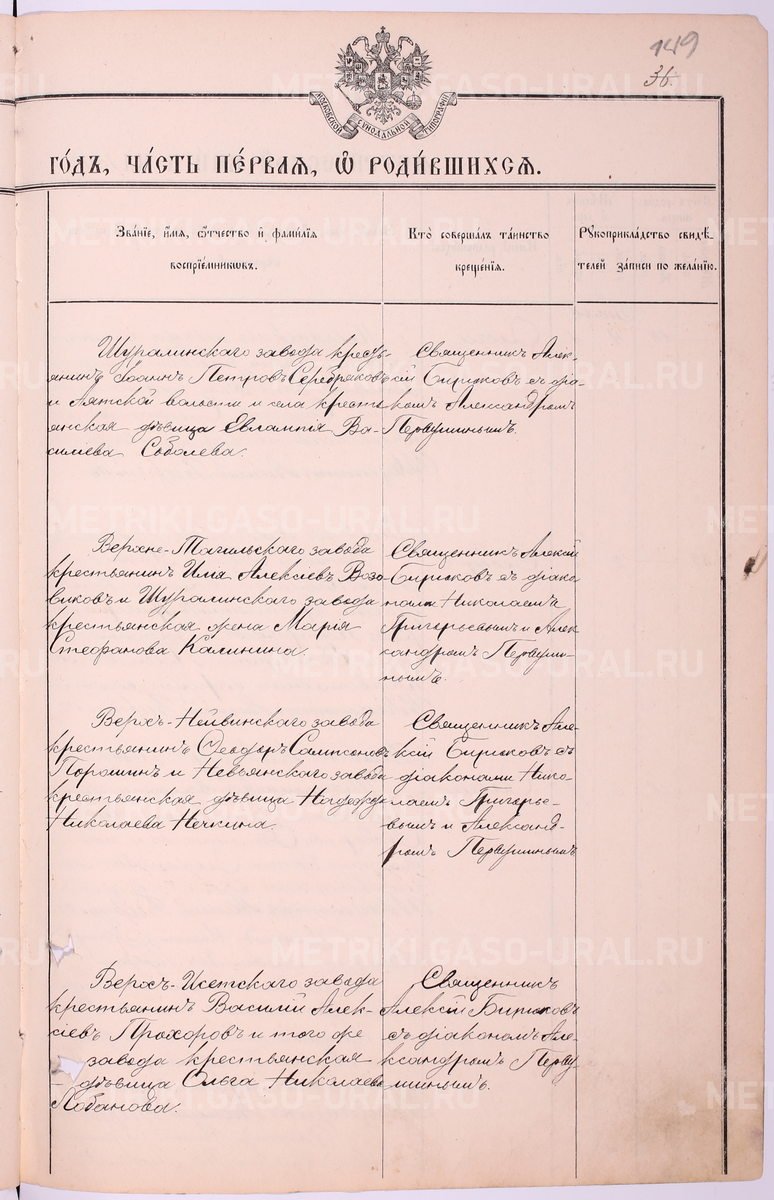 149
36.
МОСКОВСКОЙ СѴНОДАЛЬНОЙ ТИПОГРАФІИ
ГОДЪ, ЧАСТЬ ПЕРВАЯ, Ѽ РОДИВШИХСЯ.
Званіе, имя, ѿчество и фамилія
воспріемниковъ.
Кто совершалъ таинство
крещенія.
Рукоприкладство свидѣ-
телей записи по желанію.
Шуралинскаго завода кресть-
янинъ Іоаннъ Петровъ Серебряковъ
и Аятской волости и села кресть
янская дѣвица Евлампія Ва-
сильева Соболева.
Священникъ Алек-
сій Бирюковъ съ діа-
кономъ Александромъ
Первушинымъ.
Верхне-Тагильскаго завода
крестьянинъ Илія Алексіевъ Возо-
виковъ и Шуралинскаго завода
крестьянская жена Марія
Стефанова Калинина.
Священникъ Алексій
Бирюковъ съ діако-
нами Николаемъ
Григорьевымъ и Алек
сандромъ Первуши-
нымъ.
Верхъ-Нейвинскаго завода
крестьянинъ Ѳеодоръ Сампсоновъ
Порошинъ и Невьянскаго завода
крестьянская дѣвица Надежда
Николаева Нечкина.
Священникъ Але-
ксій Бирюковъ съ
діаконами Нико-
лаемъ Григорье-
вымъ и Александ-
ромъ Первушинымъ
Верхъ-Исетскаго завода
крестьянинъ Василій Алек-
сіевъ Прохоровъ и того же
завода крестьянская
дѣвица Ольга Николаева
Лобанова.
Священникъ
Алексій Бирюковъ
съ діакономъ Але-
ксандромъ Перву
шинымъ.
METRIKI.GASO-URAL.RU